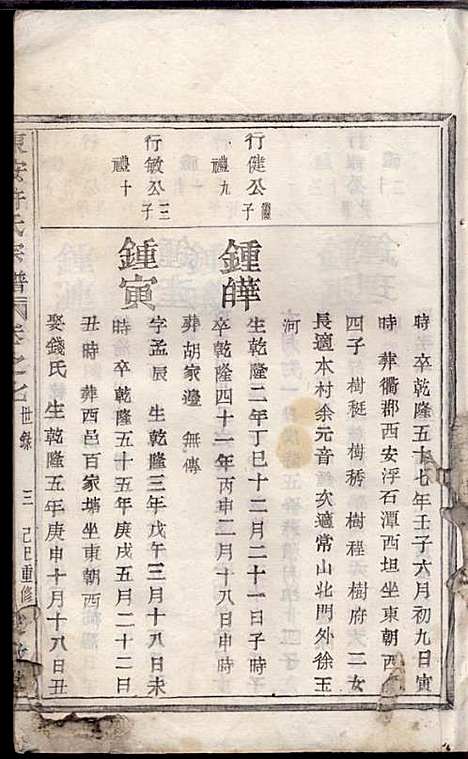 時 卒乾隆五十七年壬子六月初九日寅
時 葬衢郡西安浮石潭西坦坐東朝西
四子 樹梃 樹秀 樹程 樹府 二女
長適本村余元音 次適常山北門外徐玉
河
行健公子
禮九
鍾皣
生乾隆二年丁巳十二月二十一日子時
卒乾隆四十一年丙申二月十八日申時
葬胡家邊 無傳
行敏公三子
禮十
鍾寅
字孟辰 生乾隆三年戊午三月十八日未
時 卒乾隆五十五年庚戌五月二十二日
丑時 葬西邑百家塘坐東朝西
娶錢氏 生乾隆五年庚申十月十八日丑
東安許氏宗譜 卷之七 世錄 三 己巳重修